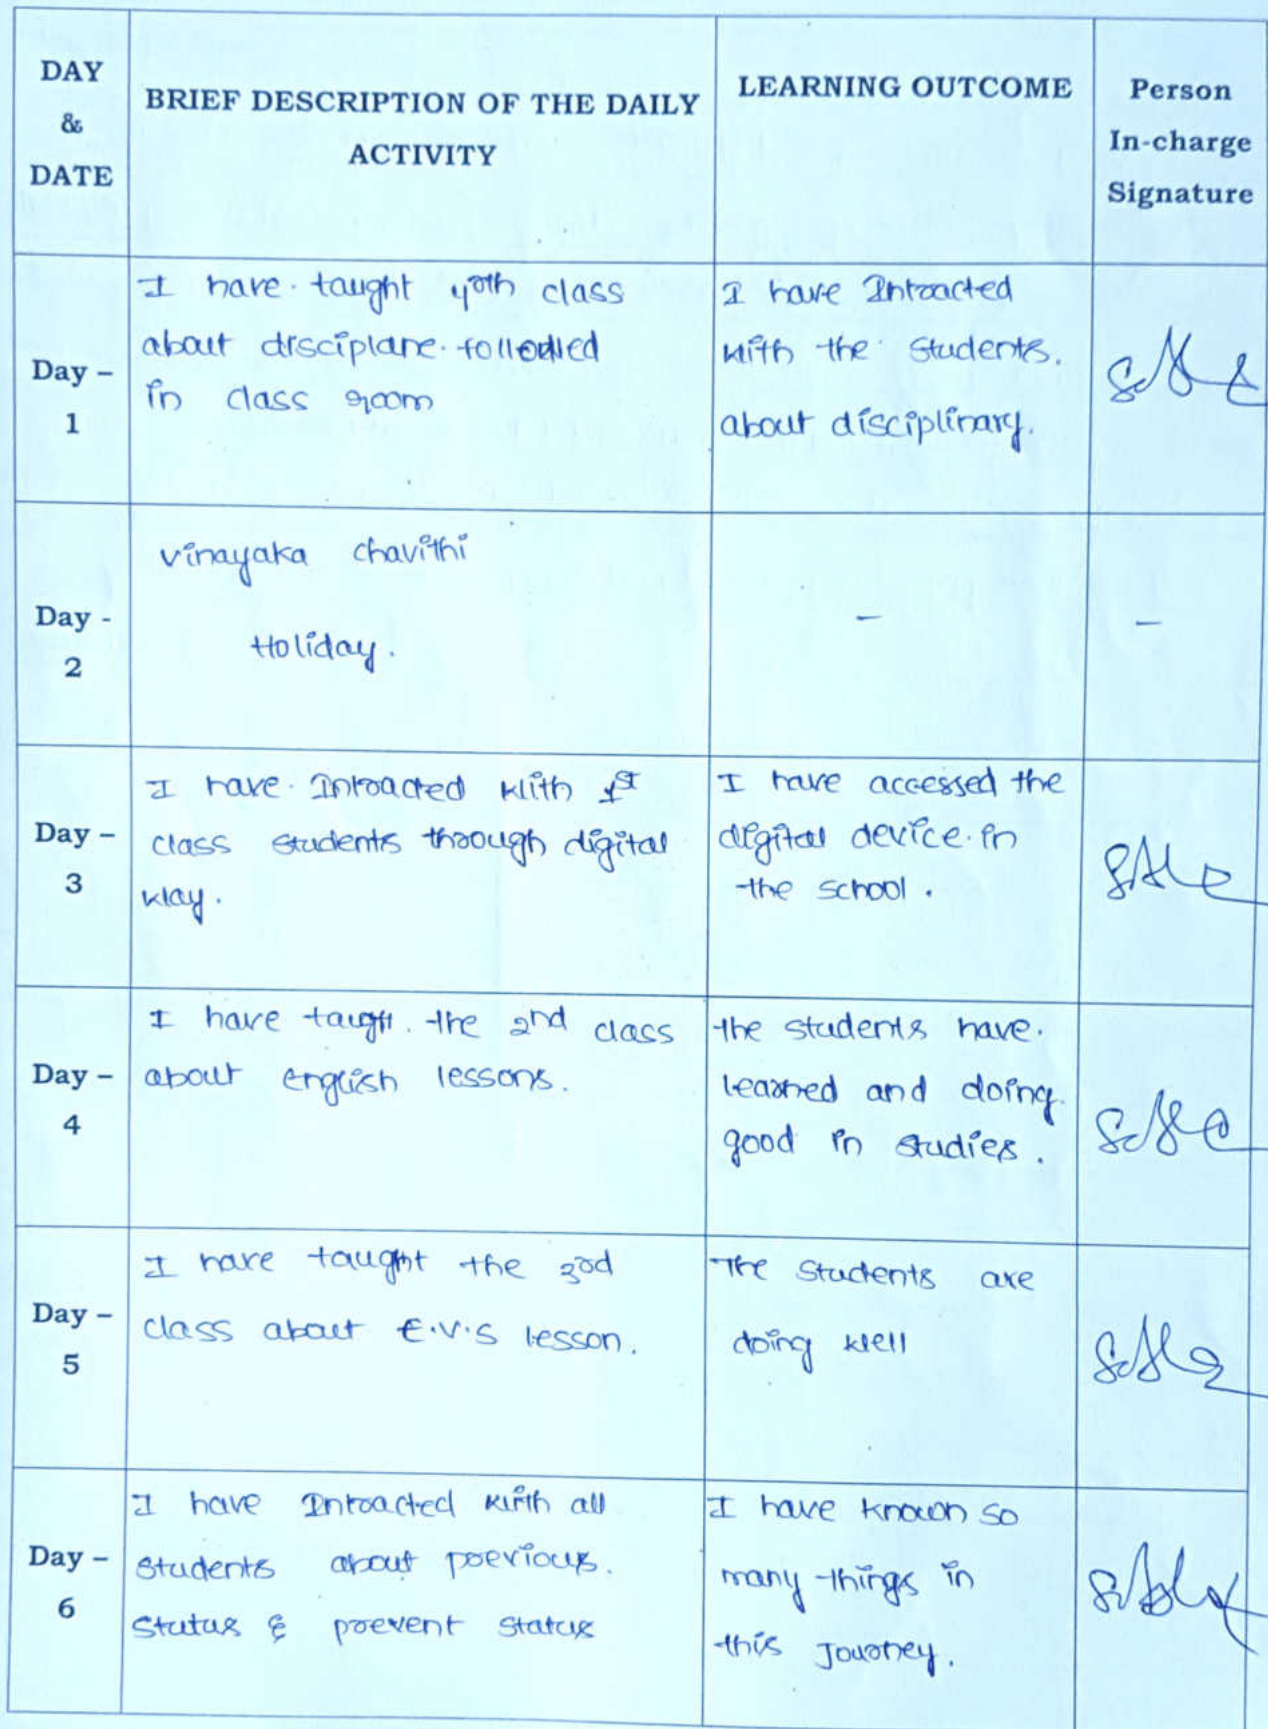 DAY
&
DATE
BRIEF DESCRIPTION OF THE DAILY
ACTIVITY
LEARNING OUTCOME
Person
In-charge
Signature
Day –
1
I have taught class
about disciplane followed
in class room
I have Intracted
with the students.
about disciplinary.
Day -
2
vinayaka chavithi
Holiday.
–
–
Day –
3
I have Intracted with 1st
class students through digital
way.
I have accessed the
digital device in
the school.
Day –
4
I have taught the 2nd class
about english lessons.
the students have.
learned and doing
good in studies.
Day –
5
I have taught the 3rd
class about E.V.S lesson.
The students are
doing well
Day –
6
I have Intracted with all
students about previous.
status & prevent status
I have known so
many things in
this Journey.